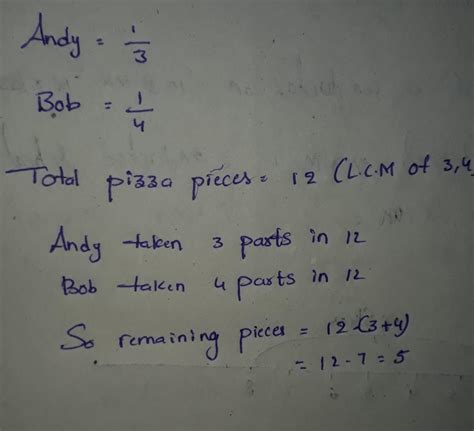 Andy = 1/3
Bob = 1/4
Total pizza pieces = 12 (L.C.M of 3,4
Andy taken 3 parts in 12
Bob taken 4 parts in 12
So remaining pieces = 12-(3+4)
= 12-7 = 5